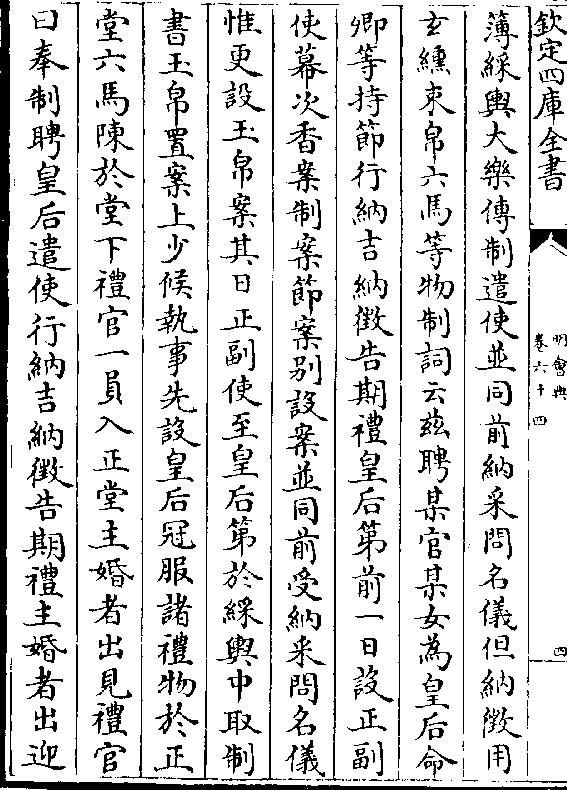 欽定四庫全書
明會典
卷六十四
四
簿綵輿大樂傳制遣使並同前納采問名儀但納徵用
玄纁束帛六馬等物制詞云茲聘某官某女為皇后命
卿等持節行納吉納徵告期禮皇后第前一日設正副
使幕次香案制案節案别設案並同前受納采問名儀
惟更設玉帛案其日正副使至皇后第於綵輿中取制
書玉帛置案上少候執事先設皇后冠服諸禮物於正
堂六馬陳於堂下禮官一員入正堂主婚者出見禮官
曰奉制聘皇后遣使行納吉納徵告期禮主婚者出迎